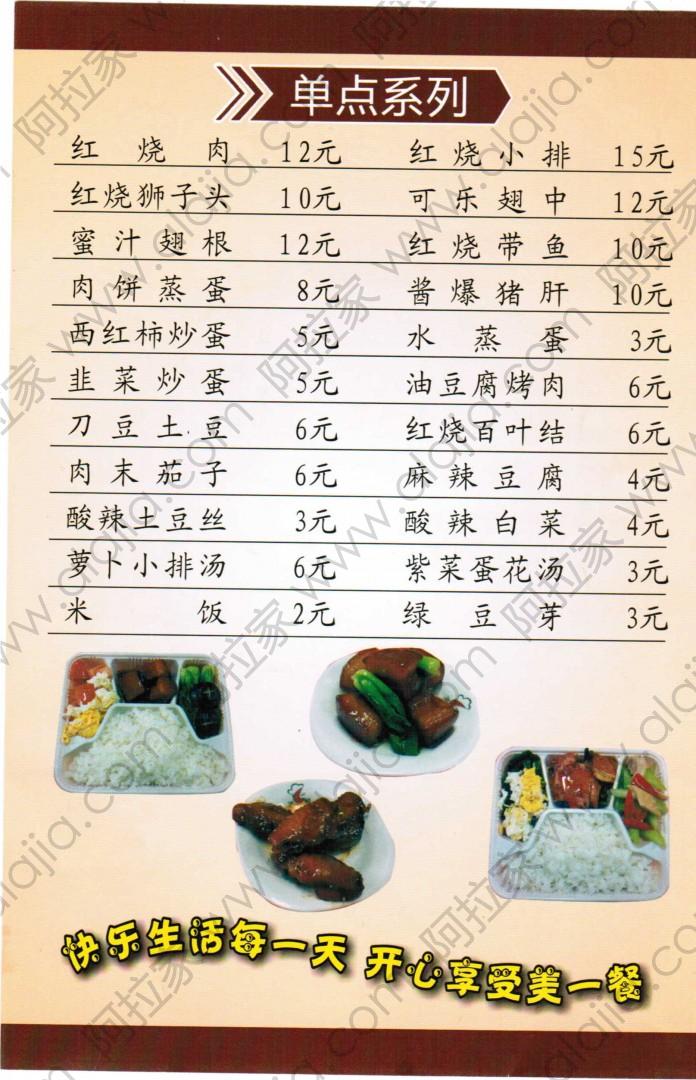 单点系列
红烧肉 12元 红烧小排 15元
红烧狮子头 10元 可乐翅中 12元
蜜汁翅根 12元 红烧带鱼 10元
肉饼蒸蛋 8元 酱爆猪肝 10元
西红柿炒蛋 5元 水蒸蛋 3元
韭菜炒蛋 5元 油豆腐烤肉 6元
刀豆土豆 6元 红烧百叶结 6元
肉末茄子 6元 麻辣豆腐 4元
酸辣土豆丝 3元 酸辣白菜 4元
萝卜小排汤 6元 紫菜蛋花汤 3元
米饭 2元 绿豆芽 3元
快乐生活每一天 开心享受美一餐
阿拉家 www.alajia.com